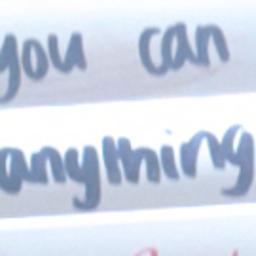 you can
anything